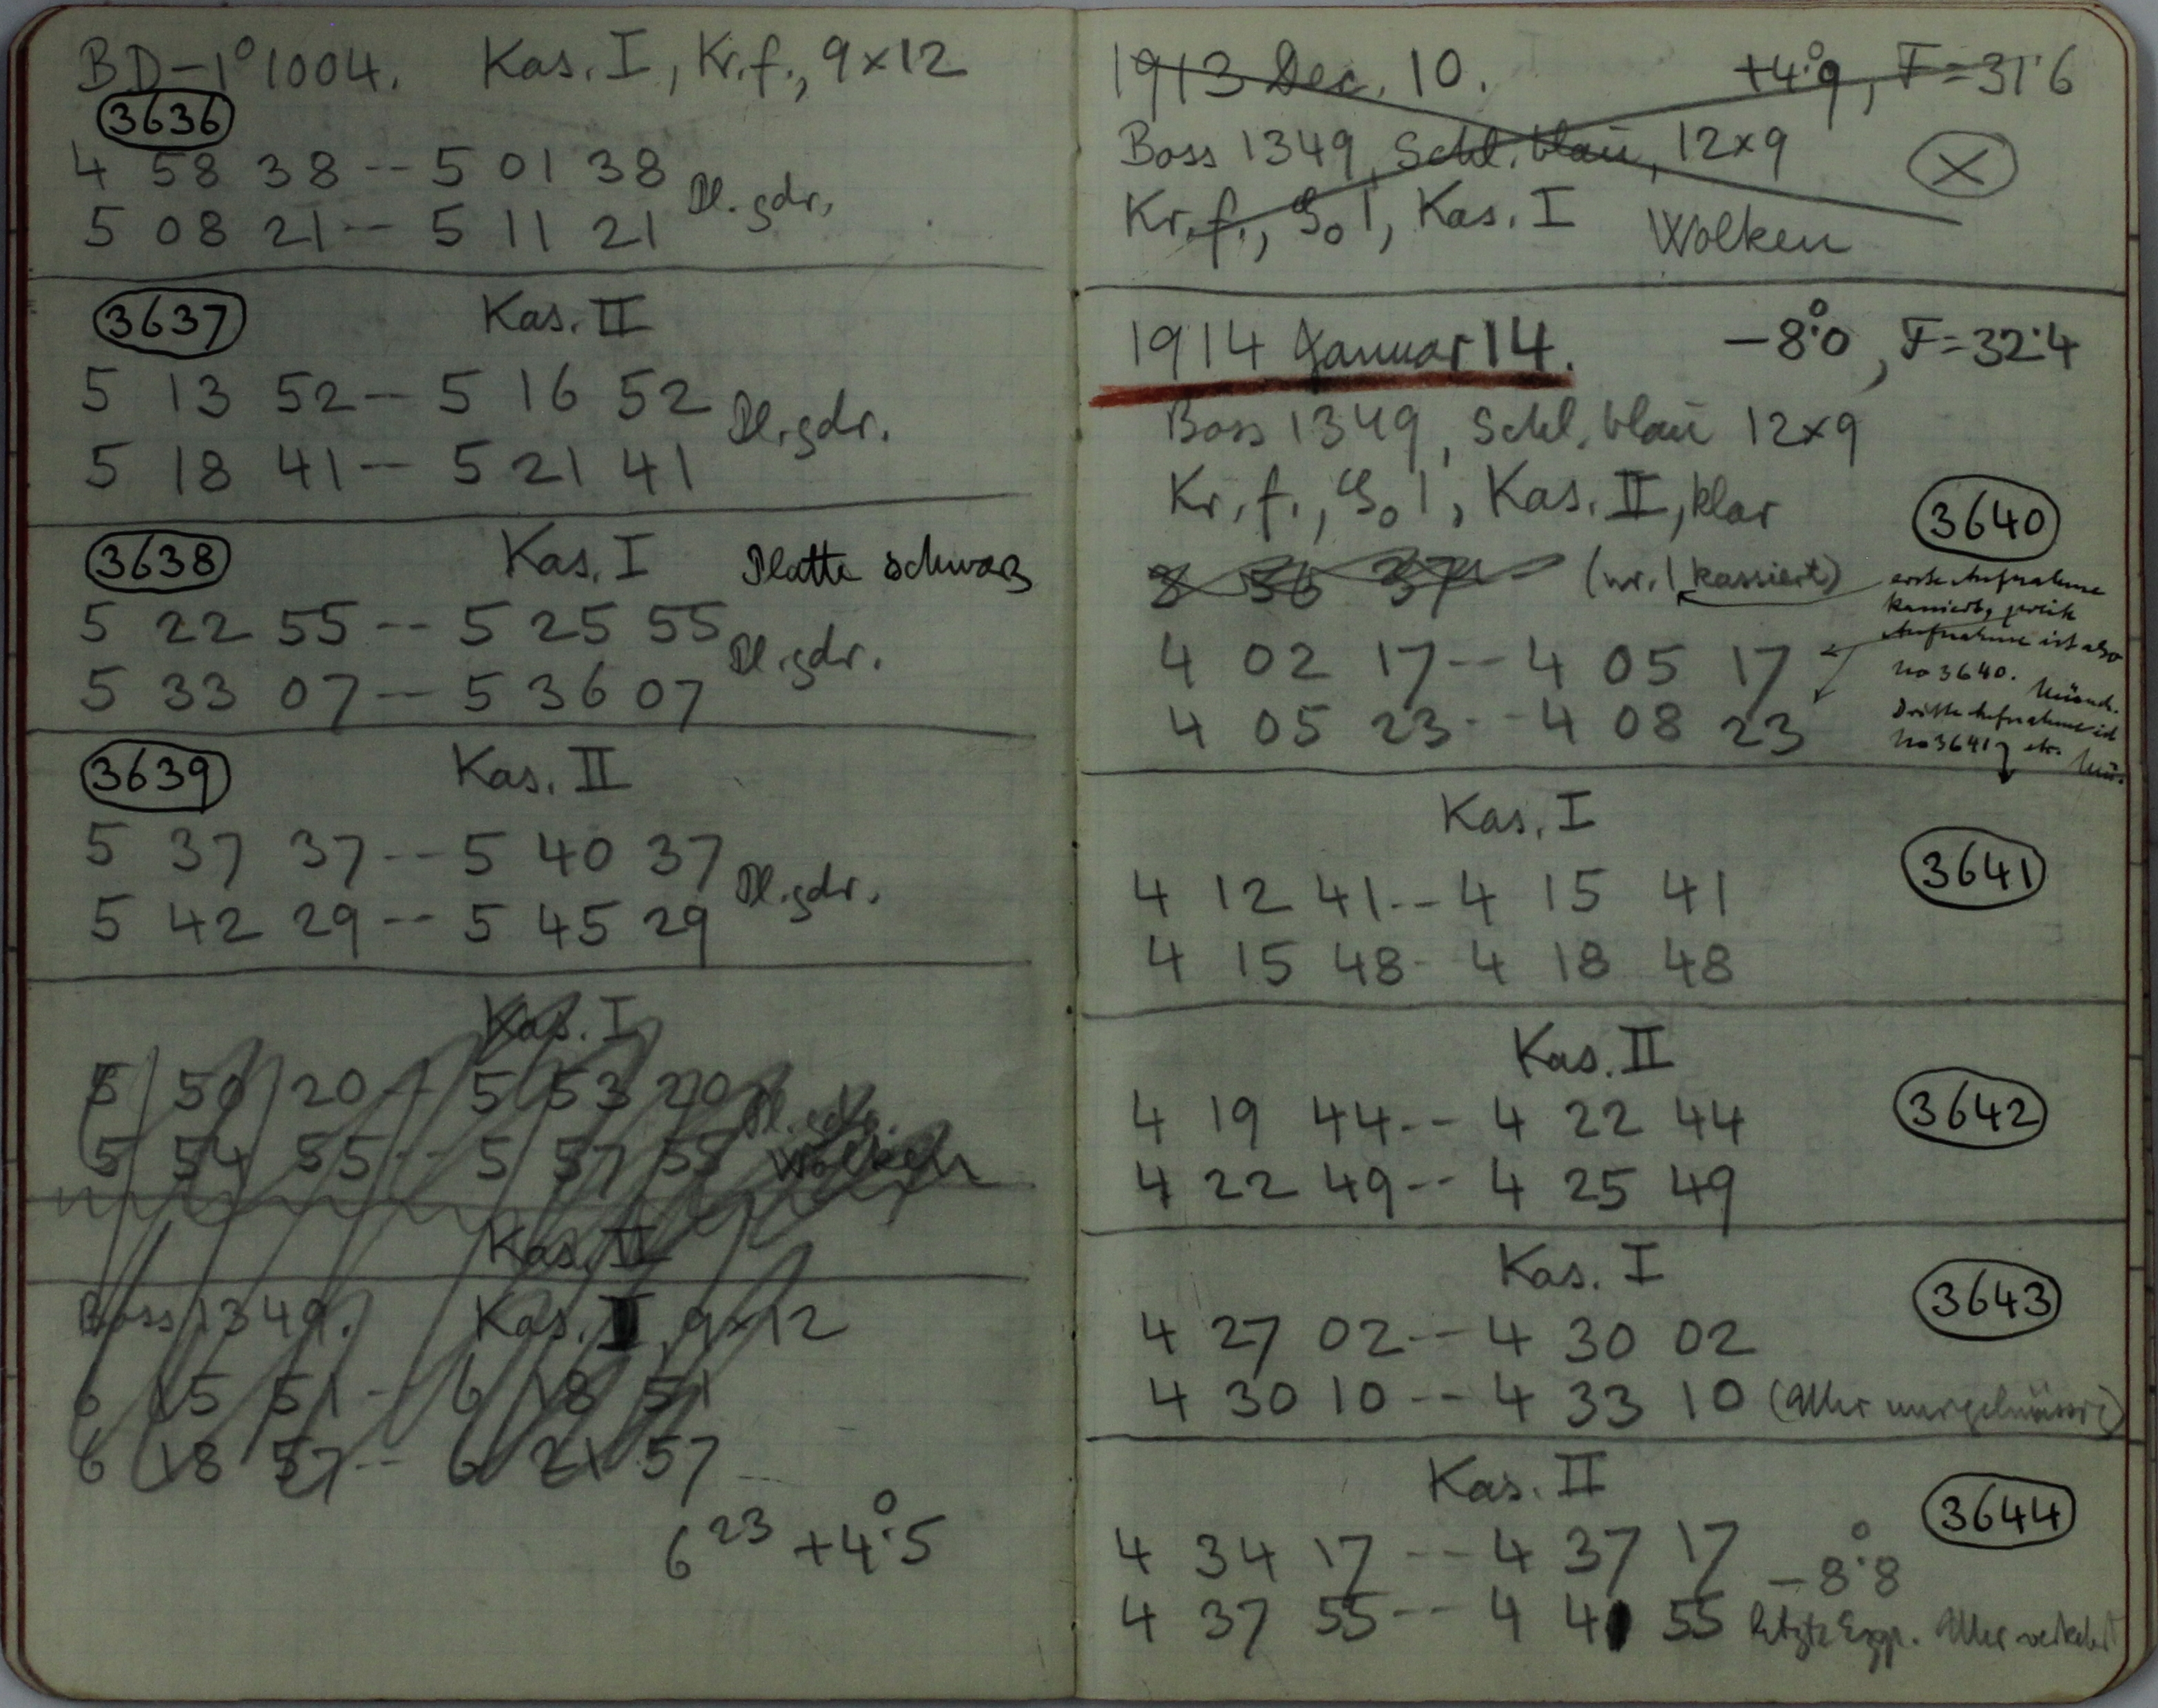 BD–1° 1004. Kas. I, Kr.f., 9×12
3636
4 58 38 -- 5 01 38
5 08 21 -- 5 11 21 Pl. gdr.
3637 Kas. II
5 13 52 -- 5 16 52
5 18 41 -- 5 21 41 Pl. gdr.
3638 Kas. I Platte schwarz
5 22 55 -- 5 25 55
5 33 07 -- 5 36 07 Pl. gdr.
3639 Kas. II
5 37 37 -- 5 40 37
5 42 29 -- 5 45 29 Pl. gdr.
Kas. I
5 50 20 -- 5 53 20 Pl. gdr.
5 54 55 -- 5 57 55 Wolken
Kas. II
Boss 1349. Kas. I, 9×12
6 15 51 -- 6 18 51
6 18 57 -- 6 21 57
6 23 +4°.5
1913 Dec. 10. +4°.9, F=31.6
Boss 1349, Schl. blau, 12×9
Kr.f., S₀1, Kas. I Wolken
1914 Januar 14. –8°.0, F=32.4
Boss 1349, Schl. blau 12×9
Kr.f., S₀1, Kas. II, klar
3640
3 56 37 (nr. 1 kassiert)
erste Aufnahme
kassiert, zweite
Aufnahme ist also
No 3640. Münch.
Dritte Aufnahme ist
No 3641 etc. Mü.
4 02 17 -- 4 05 17
4 05 23 -- 4 08 23
Kas. I
3641
4 12 41 -- 4 15 41
4 15 48 - 4 18 48
Kas. II
3642
4 19 44 -- 4 22 44
4 22 49 -- 4 25 49
Kas. I
3643
4 27 02 -- 4 30 02
4 30 10 -- 4 33 10
Kas. II
3644
4 34 17 -- 4 37 17 –8°.8
4 37 55 -- 4 40 55 letzte Exp.